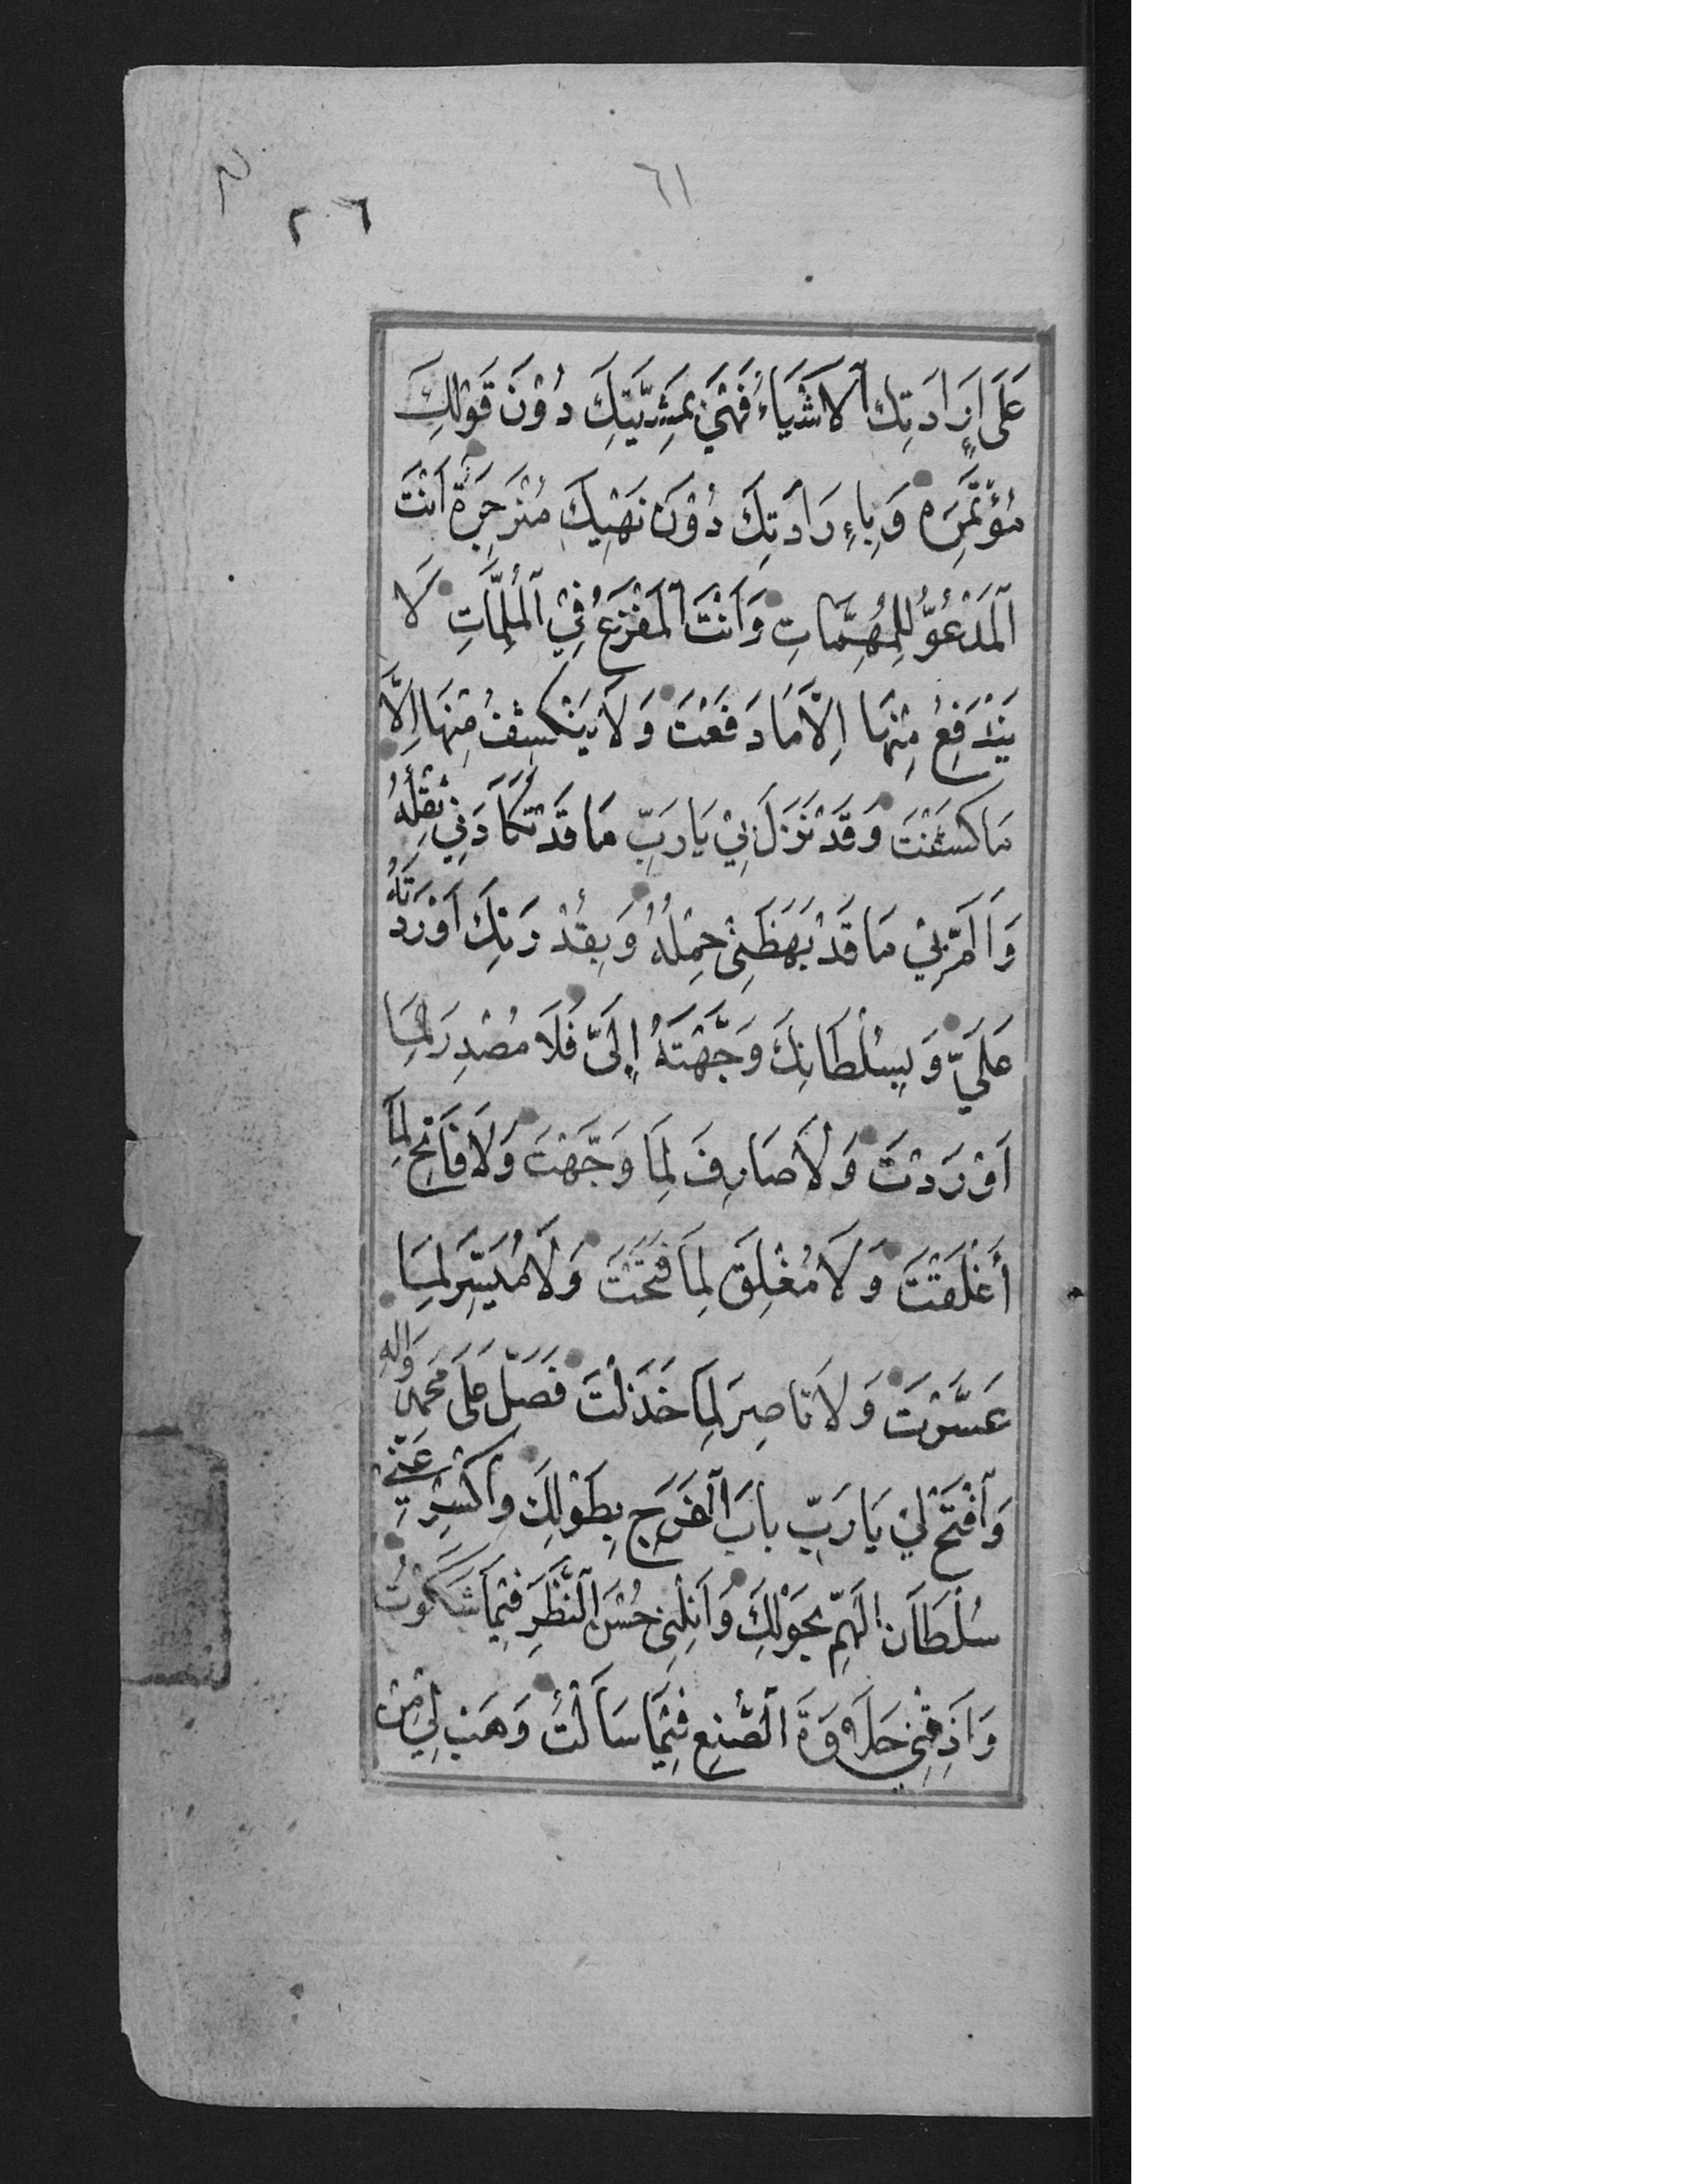 ٦١
٢٠٦
عَلَى اِرَادَتِكَ الْاَشْيَاءُ فَهِيَ بِمَشِيَّتِكَ دُوْنَ قَوْلِكَ
مُؤْتَمِرَة وَبِاءِرَادَتِكَ دُوْنَ نَهْيِكَ مُنْزَجِرَةٌ اَنْتَ
اَلْمَدْعُوُّ لِلْمُهِمَّاتِ وَاَنْتَ الْمَفْزَعُ فِيْ الْمُلِمَّاتِ لَا
يَنْدَفِعُ مِنْهَا اِلَّا مَا دَفَعْتَ وَلَا يَنْكَشِفُ مِنْهَا اِلَّا
مَا كَشَفْتَ وَقَدْ نَزَلَ بِيْ يَا رَبِّ مَا قَدْ تَكَاَّدَنِي ثِقْلُهُ
وَاَلَمَّ بِيْ مَا قَدْ بَهَظَنِيْ حِمْلُهُ وَبِقُدْرَتِكَ اَوْرَدْتَهُ
عَلَيَّ وَبِسُلْطَانِكَ وَجَّهْتَهُ اِلَيَّ فَلَا مُصْدِرَ لِمَا
اَوْرَدْتَ وَلَا صَارِفَ لِمَا وَجَّهْتَ وَلَا فَاتِحَ لِمَا
أَغْلَقْتَ وَلَا مُغْلِقَ لِمَا فَتَحْتَ وَلَا مُيَسِّرَ لِمَا
عَسَّرْتَ وَلَا نَاصِرَ لِمَا خَذَلْتَ فَصَلِّ عَلَى مُحَمَّدٍ وَالِهِ
وَافْتَحْ لِيْ يَا رَبِّ بَابَ الْفَرَجِ بِطَوْلِكَ وَاكْسِرْ عَنِّي
سُلْطَانَ الْهَمِّ بِحَوْلِكَ وَاَنِلْنِيْ حُسْنَ النَّظَرِ فِيْمَا شَكَوْتُ
وَاَذِقْنِيْ حَلَاوَةَ الصُّنْعِ فِيْمَا سَاَلْتُ وَهَبْ لِي مِنْ